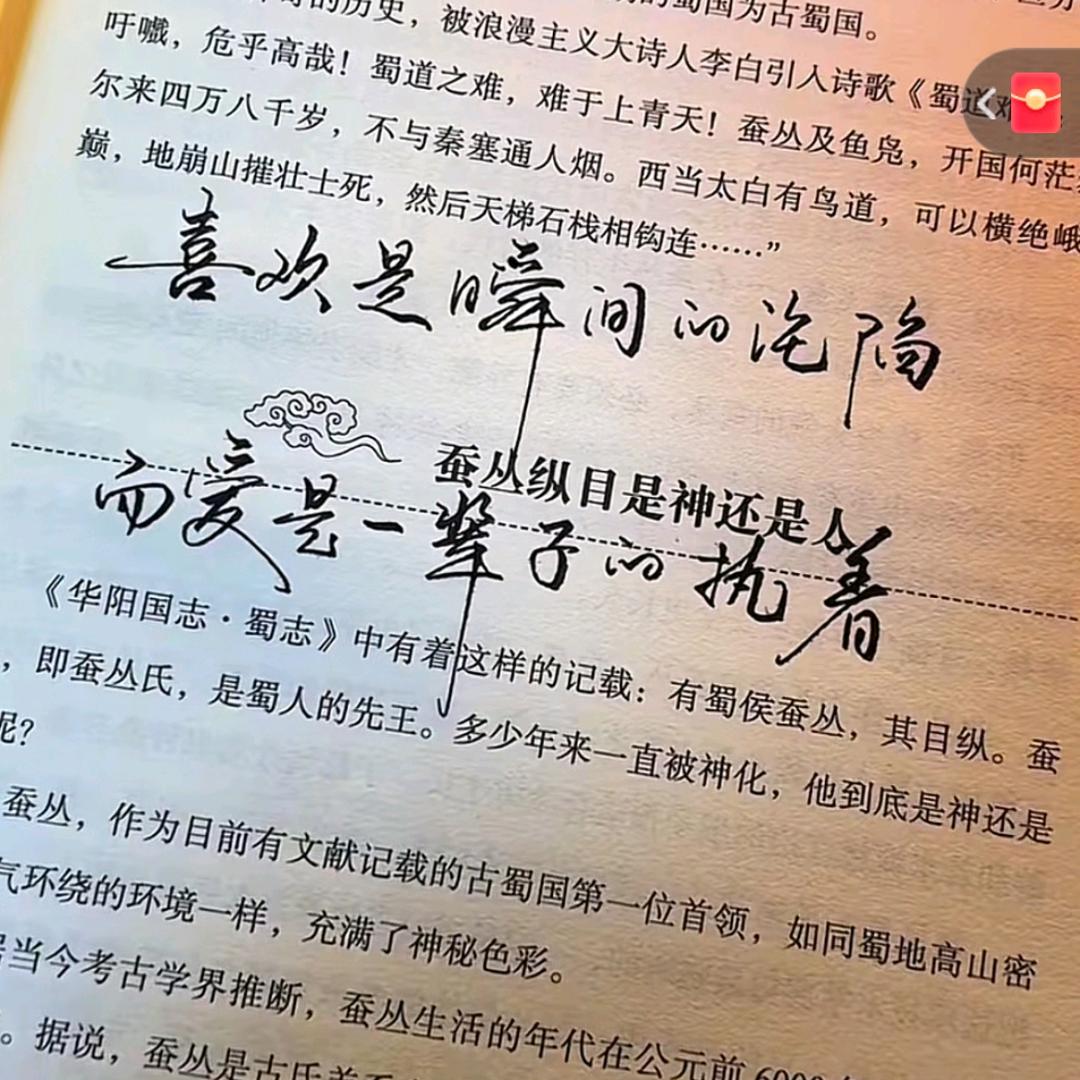 的历史，被浪漫主义大诗人李白引入诗歌《蜀道难
的蜀国为古蜀国。
吁嚱，危乎高哉！蜀道之难，难于上青天！蚕丛及鱼凫，开国何茫
尔来四万八千岁，不与秦塞通人烟。西当太白有鸟道，可以横绝峨
巅，地崩山摧壮士死，然后天梯石栈相钩连……”
喜欢是瞬间的沦陷
蚕丛纵目是神还是人
而爱是一辈子的执着
《华阳国志·蜀志》中有着这样的记载：有蜀侯蚕丛，其目纵。蚕
，即蚕丛氏，是蜀人的先王。多少年来一直被神化，他到底是神还是
呢？
蚕丛，作为目前有文献记载的古蜀国第一位首领，如同蜀地高山密
气环绕的环境一样，充满了神秘色彩。
当今考古学界推断，蚕丛生活的年代在公元前6000
。据说，蚕丛是古氐羌